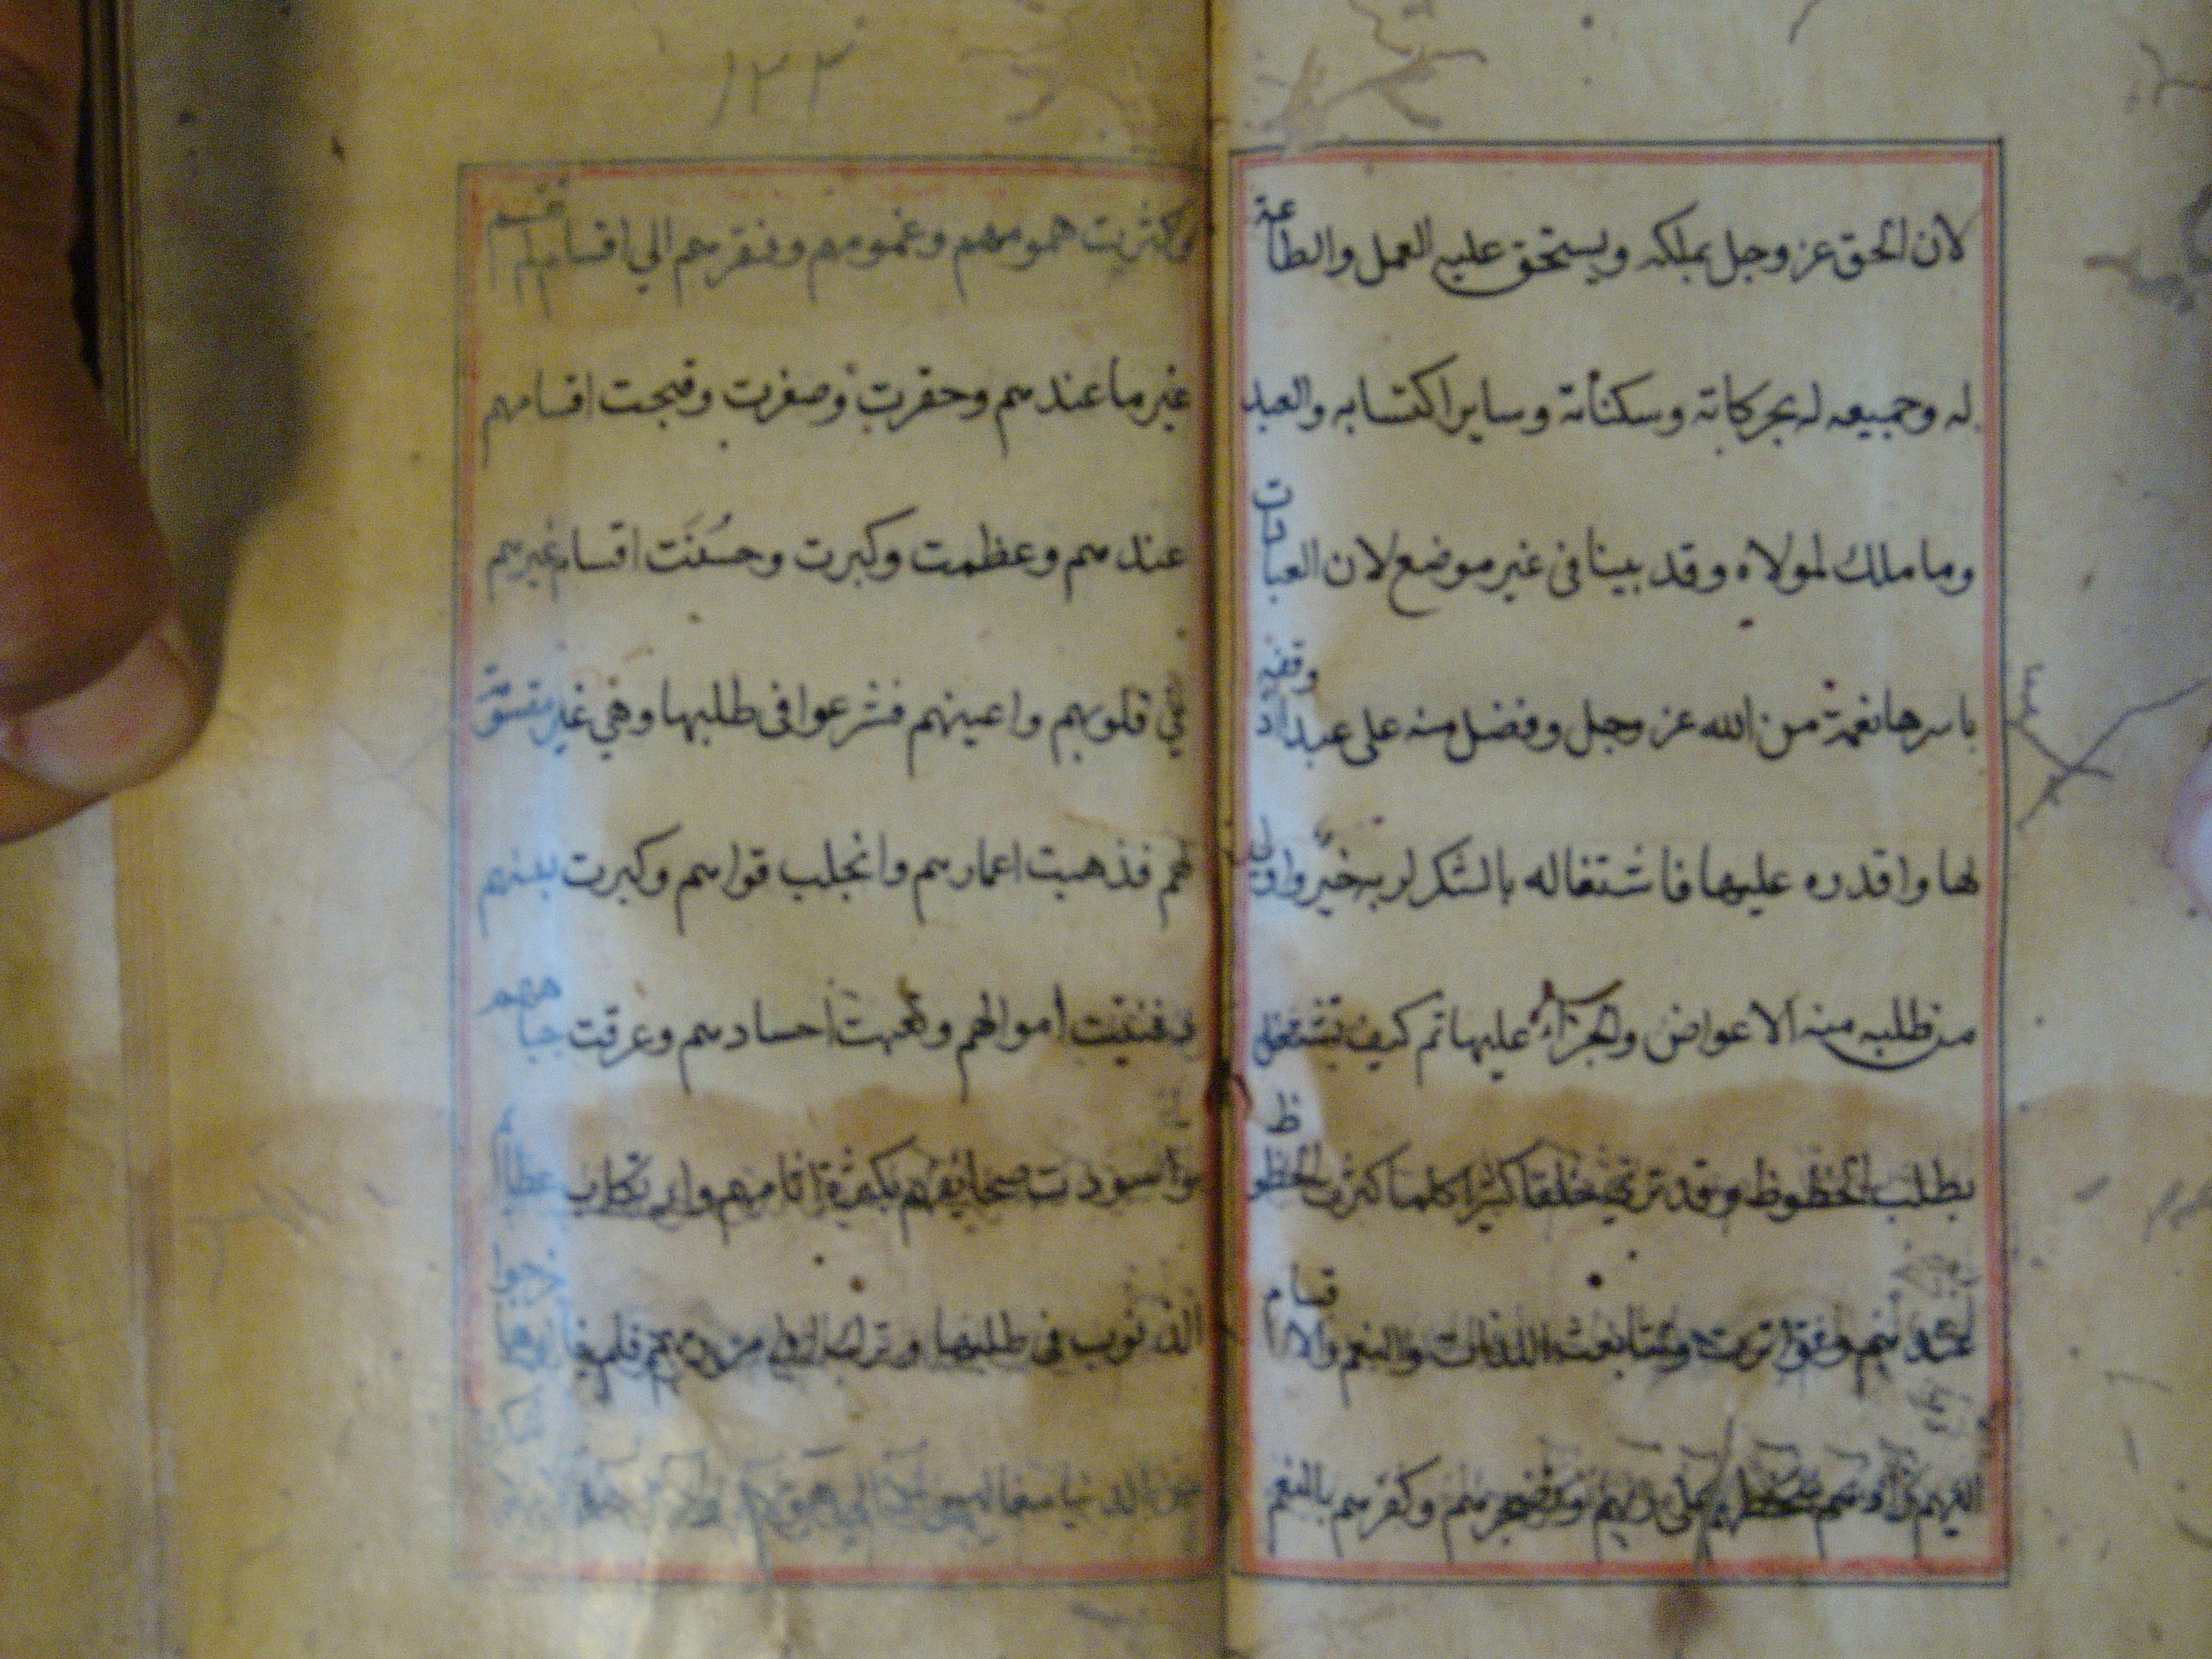 لان الحق عز وجل يملكه ويستحق عليه العمل والطاعة
له وجميعه له بحركاته وسكناته وساير اكتسابه والعبد
وما ملك لمولاه وقد بينا في غير موضع لان العبادات
باسرها نعمة من الله عز وجل وفضل منه على عبده اذ وفقه
لها واقدره عليها فاشتغاله بالشكر لربه خير واولى
من طلبه منه الاعواض والجزاء عليها ثم كيف تشتغل
بطلب الحظوظ وقد ترى خلقا كثيرا كلما كثرت الحظوظ
عندهم وتواترت وتتابعت اللذات والنعم والاقسام
اليهم زاد سخطهم على ربهم وتضجرهم وكفرهم بالنعم
١٢٢
وكثرت همومهم وغمومهم وفقرهم الي اقسام لم تقسم
غير ما عندهم وحقرت وصغرت وقبحت اقسامهم
عندهم وعظمت وكبرت وحسُنَت اقسام غيرهم
في قلوبهم واعينهم فشرعوا في طلبها وهي غير مقسومة
لهم فذهبت اعمارهم وانحلت قواهم وكبرت سنهم
وفنيت اموالهم وتعبت اجسادهم وعرقت جباههم
واسودت صحايفهم بكثرة اثامهم وارتكاب عظايم
الذنوب في طلبها وترك اوامر ربهم فلم ينالوها وخرجوا
من الدنيا مفاليس